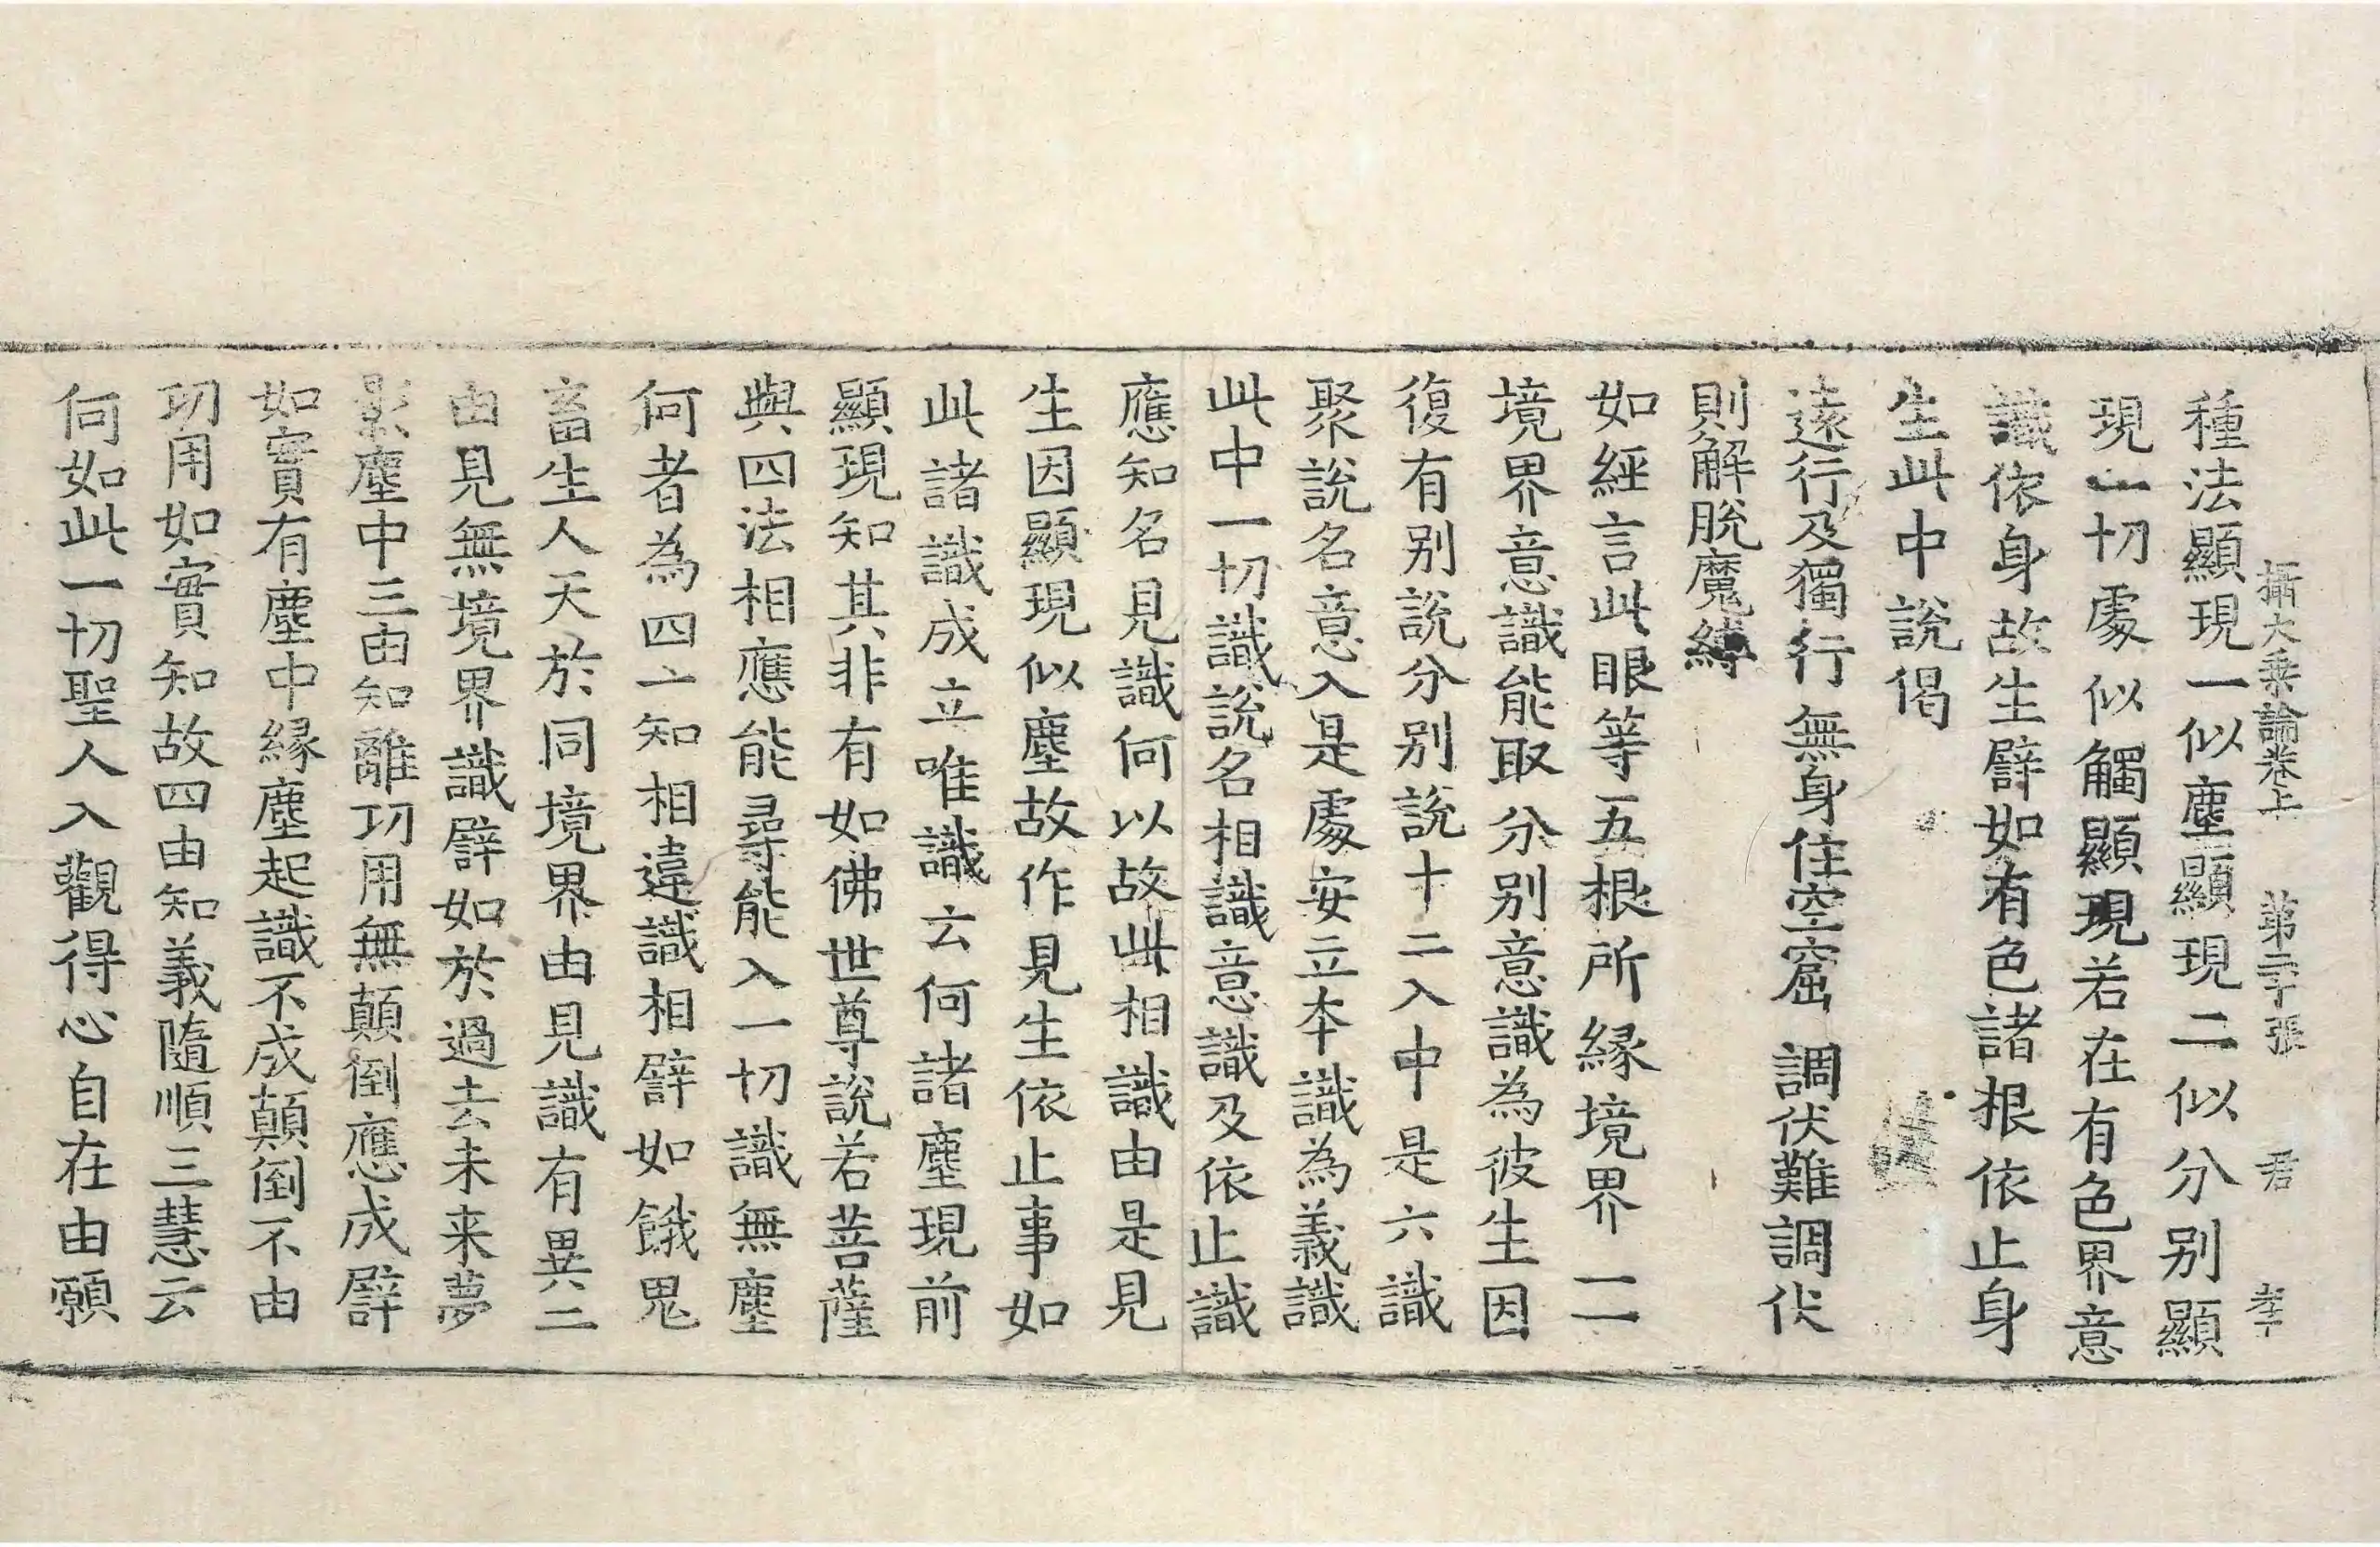 攝大乗論卷上 第二十張 君 孝
種法顯現一似塵顯現二似分别顯
現一切處似觸顯現若在有色界意
識依身故生譬如有色諸根依止身
生此中說偈
遠行及獨行 無身住空窟 調伏難調伏
則解脫魔縛
如經言此眼等五根所縁境界一一
境界意識能取分别意識為彼生因
復有别說分别說十二入中是六識
聚說名意入是處安立本識為義識
此中一切識說名相識意識及依止識
應知名見識何以故此相識由是見
生因顯現似塵故作見生依止事如
此諸識成立唯識云何諸塵現前
顯現知其非有如佛世尊說若菩薩
與四法相應能尋能入一切識無塵
何者為四一知相違識相譬如餓鬼
畜生人天於同境界由見識有異二
由見無境界識譬如於過去未来夢
影塵中三由知離功用無顛倒應成譬
如實有塵中縁塵起識不成顛倒不由
功用如實知故四由知義隨順三慧云
何如此一切聖人入觀得心自在由願